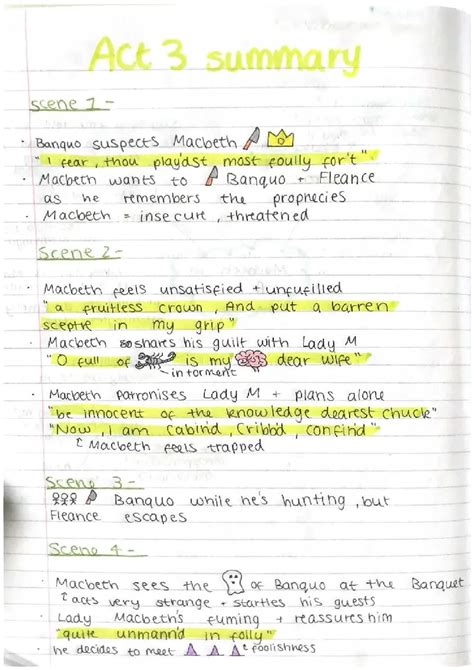 Act 3 summary
scene 1 -
· Banquo suspects Macbeth
" I fear, thou play'dst most foully for't".
· Macbeth wants to Banquo + Fleance
as he remembers the prophecies
· Macbeth = insecure, threatened
Scene 2-
· Macbeth feels unsatisfied + unfufilled
"a fruitless crown, And put a barren
sceptre in my grip"
· Macbeth shares his guilt with Lady M
"O full of is my dear wife"
in torment
· Macbeth patronises Lady M + plans alone
"be innocent of the knowledge dearest chuck"
"Now, I am cabin'd, cribb'd, confin'd"
Macbeth feels trapped
Scene 3 -
Banquo while he's hunting, but
Fleance escapes
Scene 4 -
· Macbeth sees the of Banquo at the Banquet
acts very strange + startles his guests
· Lady Macbeth's fuming + reassures him
"quite unmann'd in folly"
· he decides to meet foolishness